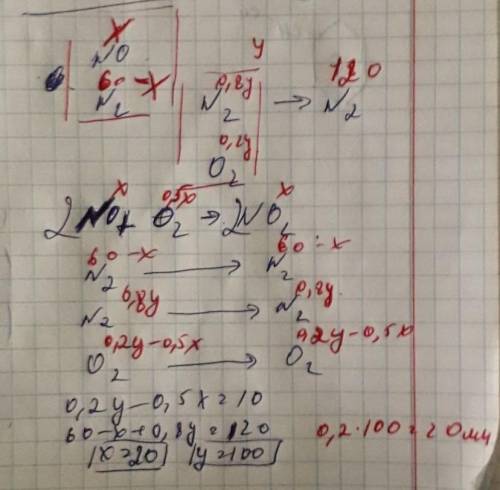 x
NO
60-x
N2
y
0,8y
N2
0,2y
O2
→
120
N2
x 0,5x x
2NO + O2 → 2NO2
60-x 60-x
N2 → N2
0,8y 0,8y
N2 → N2
0,2y-0,5x 0,2y-0,5x
O2 → O2
0,2y-0,5x=10
60-x+0,8y=120 0,2·100=20мл
x=20 y=100